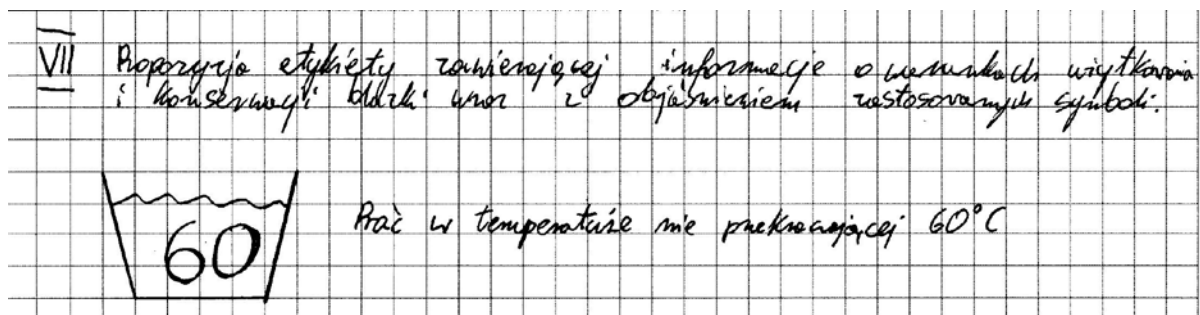 VII Propozycja etykiety zawierającej informacje o warunkach użytkowania
i konserwacji bluzki wraz z objaśnieniem zastosowanych symboli.
60 Prać w temperaturze nie przekraczającej 60°C